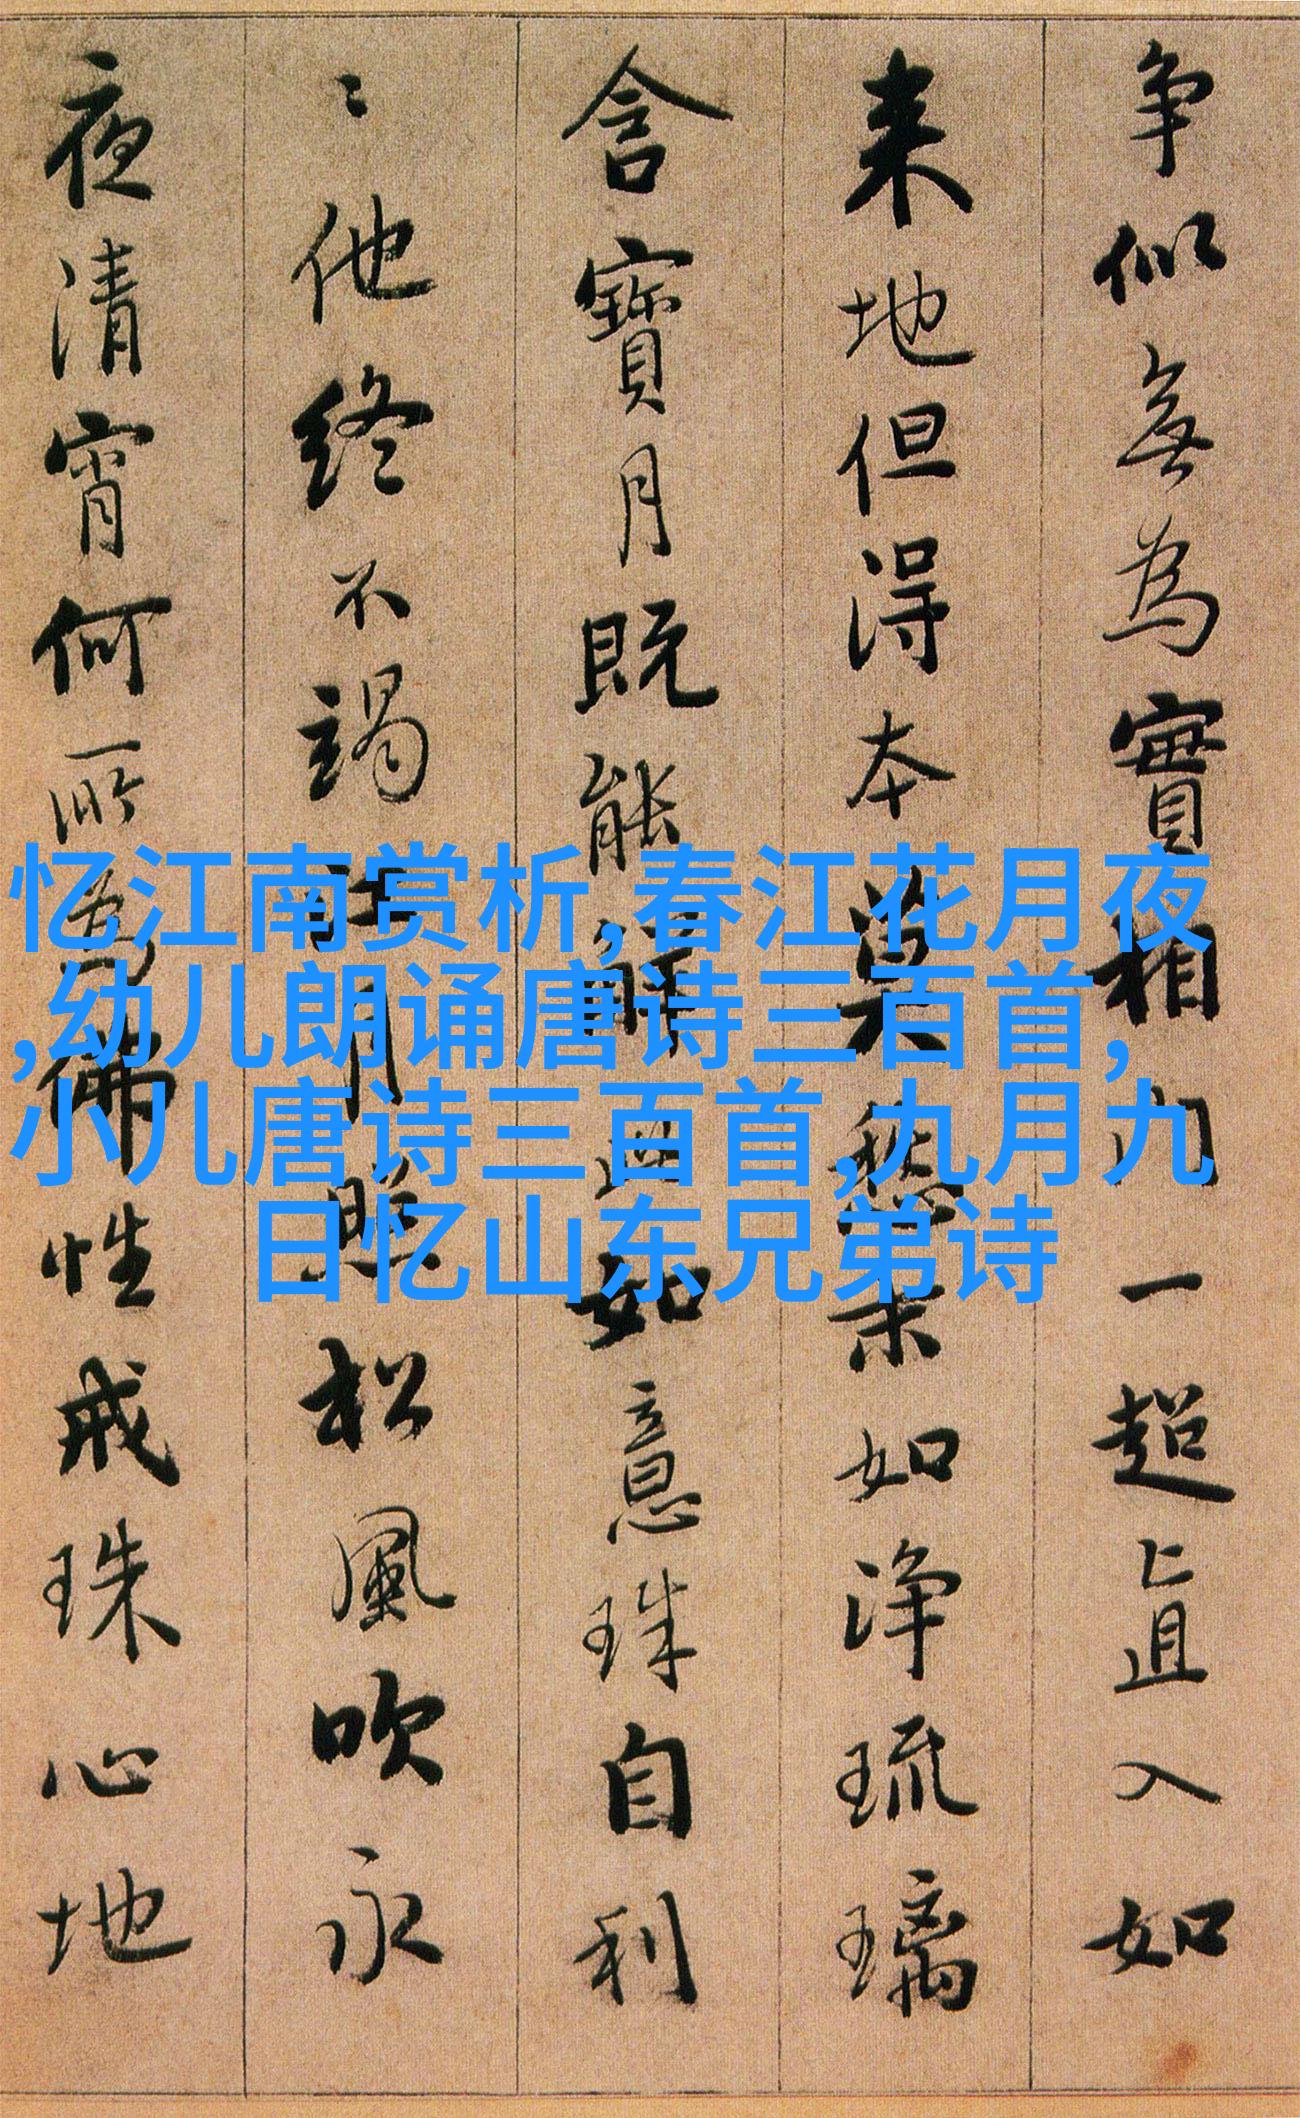 争似無為實相門一超直入如
来地但得本莫愁末如淨琉璃
含寶月既能解此如意珠自利
〻他終不竭江月照松風吹永
夜清宵何所為佛性戒珠心地
忆江南赏析,春江花月夜
,幼儿朗诵唐诗三百首,
小儿唐诗三百首,九月九
日忆山东兄弟诗